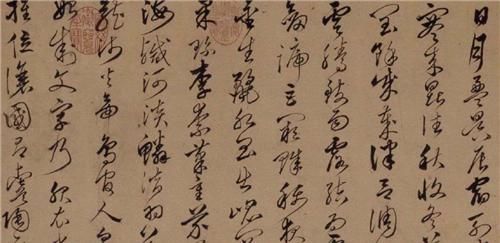 日月盈昃辰宿列
寒来暑往秋收冬
閏餘成歲律呂調
雲騰致雨露結為
劍號巨闕珠稱夜
金生麗水玉出崐
果珍李柰菜重芥
海鹹河淡鱗潛羽
龍師火帝鳥官人皇
始制文字乃服衣
推位讓國有虞陶